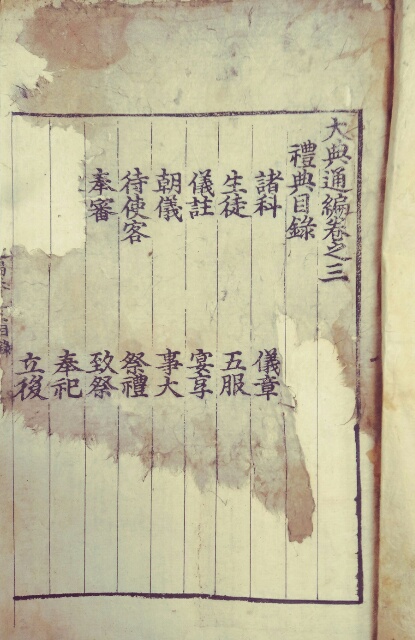 大典通編卷之三
禮典目錄
諸科 儀章
生徒 五服
儀註 宴享
朝儀 事大
待使客 祭禮
奉審 致祭
奉祀
立後